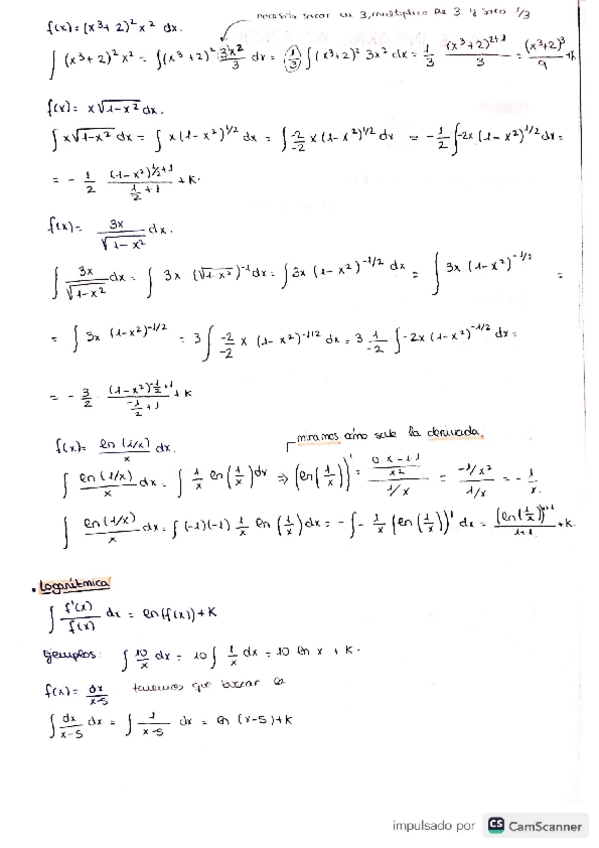 necesito sacar un 3, multiplico De 3 y saco 1/3
f(x) = (x³+2)² x² dx.
∫ (x³+2)² x² = ∫(x³+2)² 3x²/3 dx = 1/3 ∫(x³+2)² 3x² dx = 1/3 (x³+2)²⁺¹/3 = (x³+2)³/9 + K
f(x) = x√1-x² dx.
∫x√1-x² dx = ∫ x(1-x²)^1/2 dx = ∫ -2/-2 x (1-x²)^1/2 dx = -1/2 ∫-2x (1-x²)^1/2 dx =
= - 1/2 (1-x²)^1/2+1 / 1/2+1 + K.
f(x) = 3x/√1-x² dx.
∫ 3x/√1-x² dx = ∫ 3x (√1-x²)^-1 dx = ∫3x (1-x²)^-1/2 dx = ∫ 3x (1-x²)^-1/2 =
= ∫ 3x (1-x²)^-1/2 = 3∫ -2/-2 x (1-x²)^-1/2 dx = 3 1/-2 ∫-2x (1-x²)^-1/2 dx =
= - 3/2 (1-x²)^-1/2+1 / -1/2+1 + K
f(x) = ln(1/x)/x dx. miramos cómo sale la derivada.
∫ ln(1/x)/x dx = ∫ 1/x ln(1/x) dx ⇒ (ln(1/x))' = 0x-1·1/x² / 1/x = -1/x² / 1/x = - 1/x.
∫ ln(1/x)/x dx = ∫(-1)(-1) 1/x ln(1/x) dx = -∫- 1/x (ln(1/x))' dx = (ln(1/x))^1+1 / 1+1 + K.
. Logarítmica
∫ f'(x)/f(x) dx = ln(f(x)) + K
Ejemplos: ∫ 10/x dx = 10∫ 1/x dx = 10 ln x + K.
f(x) = dx/x-5 tenemos que buscar la
∫ dx/x-5 dx = ∫ 1/x-5 dx = ln (x-5) + K
impulsado por CS CamScanner